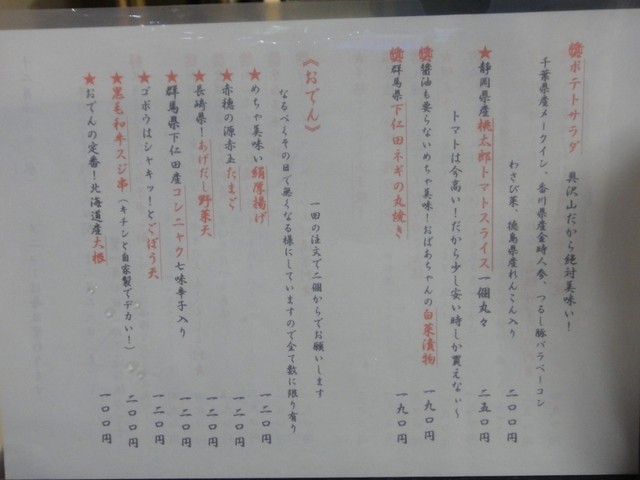 ㊝ポテトサラダ 具沢山だから絶対美味い!
千葉県産メークイン、香川県産金時人参、つるし豚バラベーコン
わさび菜、徳島県産れんこん入り 二〇〇円
★静岡県産桃太郎トマトスライス一個丸々 二五〇円
トマトは今高い!だから少し安い時しか買えなぃ〜
醤油も要らないめちゃ美味!おばあちゃんの白菜漬物 一九〇円
群馬県下仁田ネギの丸焼き 一九〇円
《おでん》 一回の注文で二個からでお願いします
なるべくその日で無くなる様にしていますので全て数に限り有り
★めちゃ美味い絹厚揚げ 一二〇円
★赤穂の源赤玉たまご 一二〇円
★長崎県!あげだし野菜天 一二〇円
★群馬県下仁田産コンニャク七味辛子入り 一二〇円
★ゴボウはシャキッ!とごぼう天 一二〇円
★黒毛和牛スジ串(キチンと自家製でデカい!) 二〇〇円
★おでんの定番!北海道産大根 一〇〇円